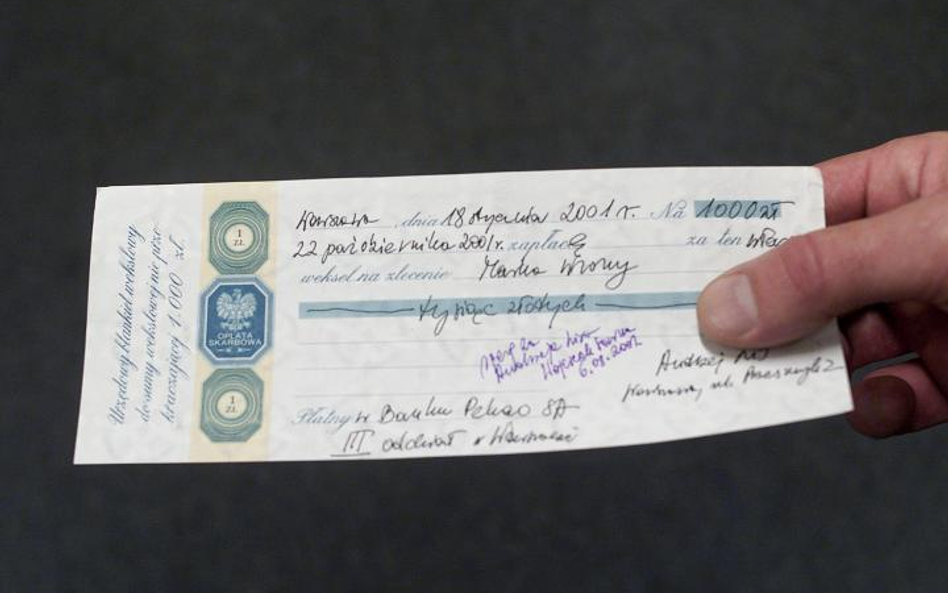 Urzędowy blankiet wekslowy
do sumy wekslowej nie prze-
kraczającej 1.000 zł.
1
ZŁ
OPŁATA
SKARBOWA
1
ZŁ
Warszawa, dnia 18 stycznia 2001 r. Na 1000 zł
22 października 2001r. zapłacę za ten
weksel na zlecenie Marka Wrony
tysiąc złotych
6.08.2001
Andrzej
Warszawa, ul. 2
Płatny w Banku Pekao SA
III oddział w Warszawie